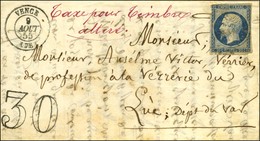 VENCE
9
AOUT
53
(78)
Taxe pour Timbre
altéré.
Monsieur,
Monsieur Anselme Victor Verrier,
de profession à la verrerie du
Luc, Dépt du Var
30